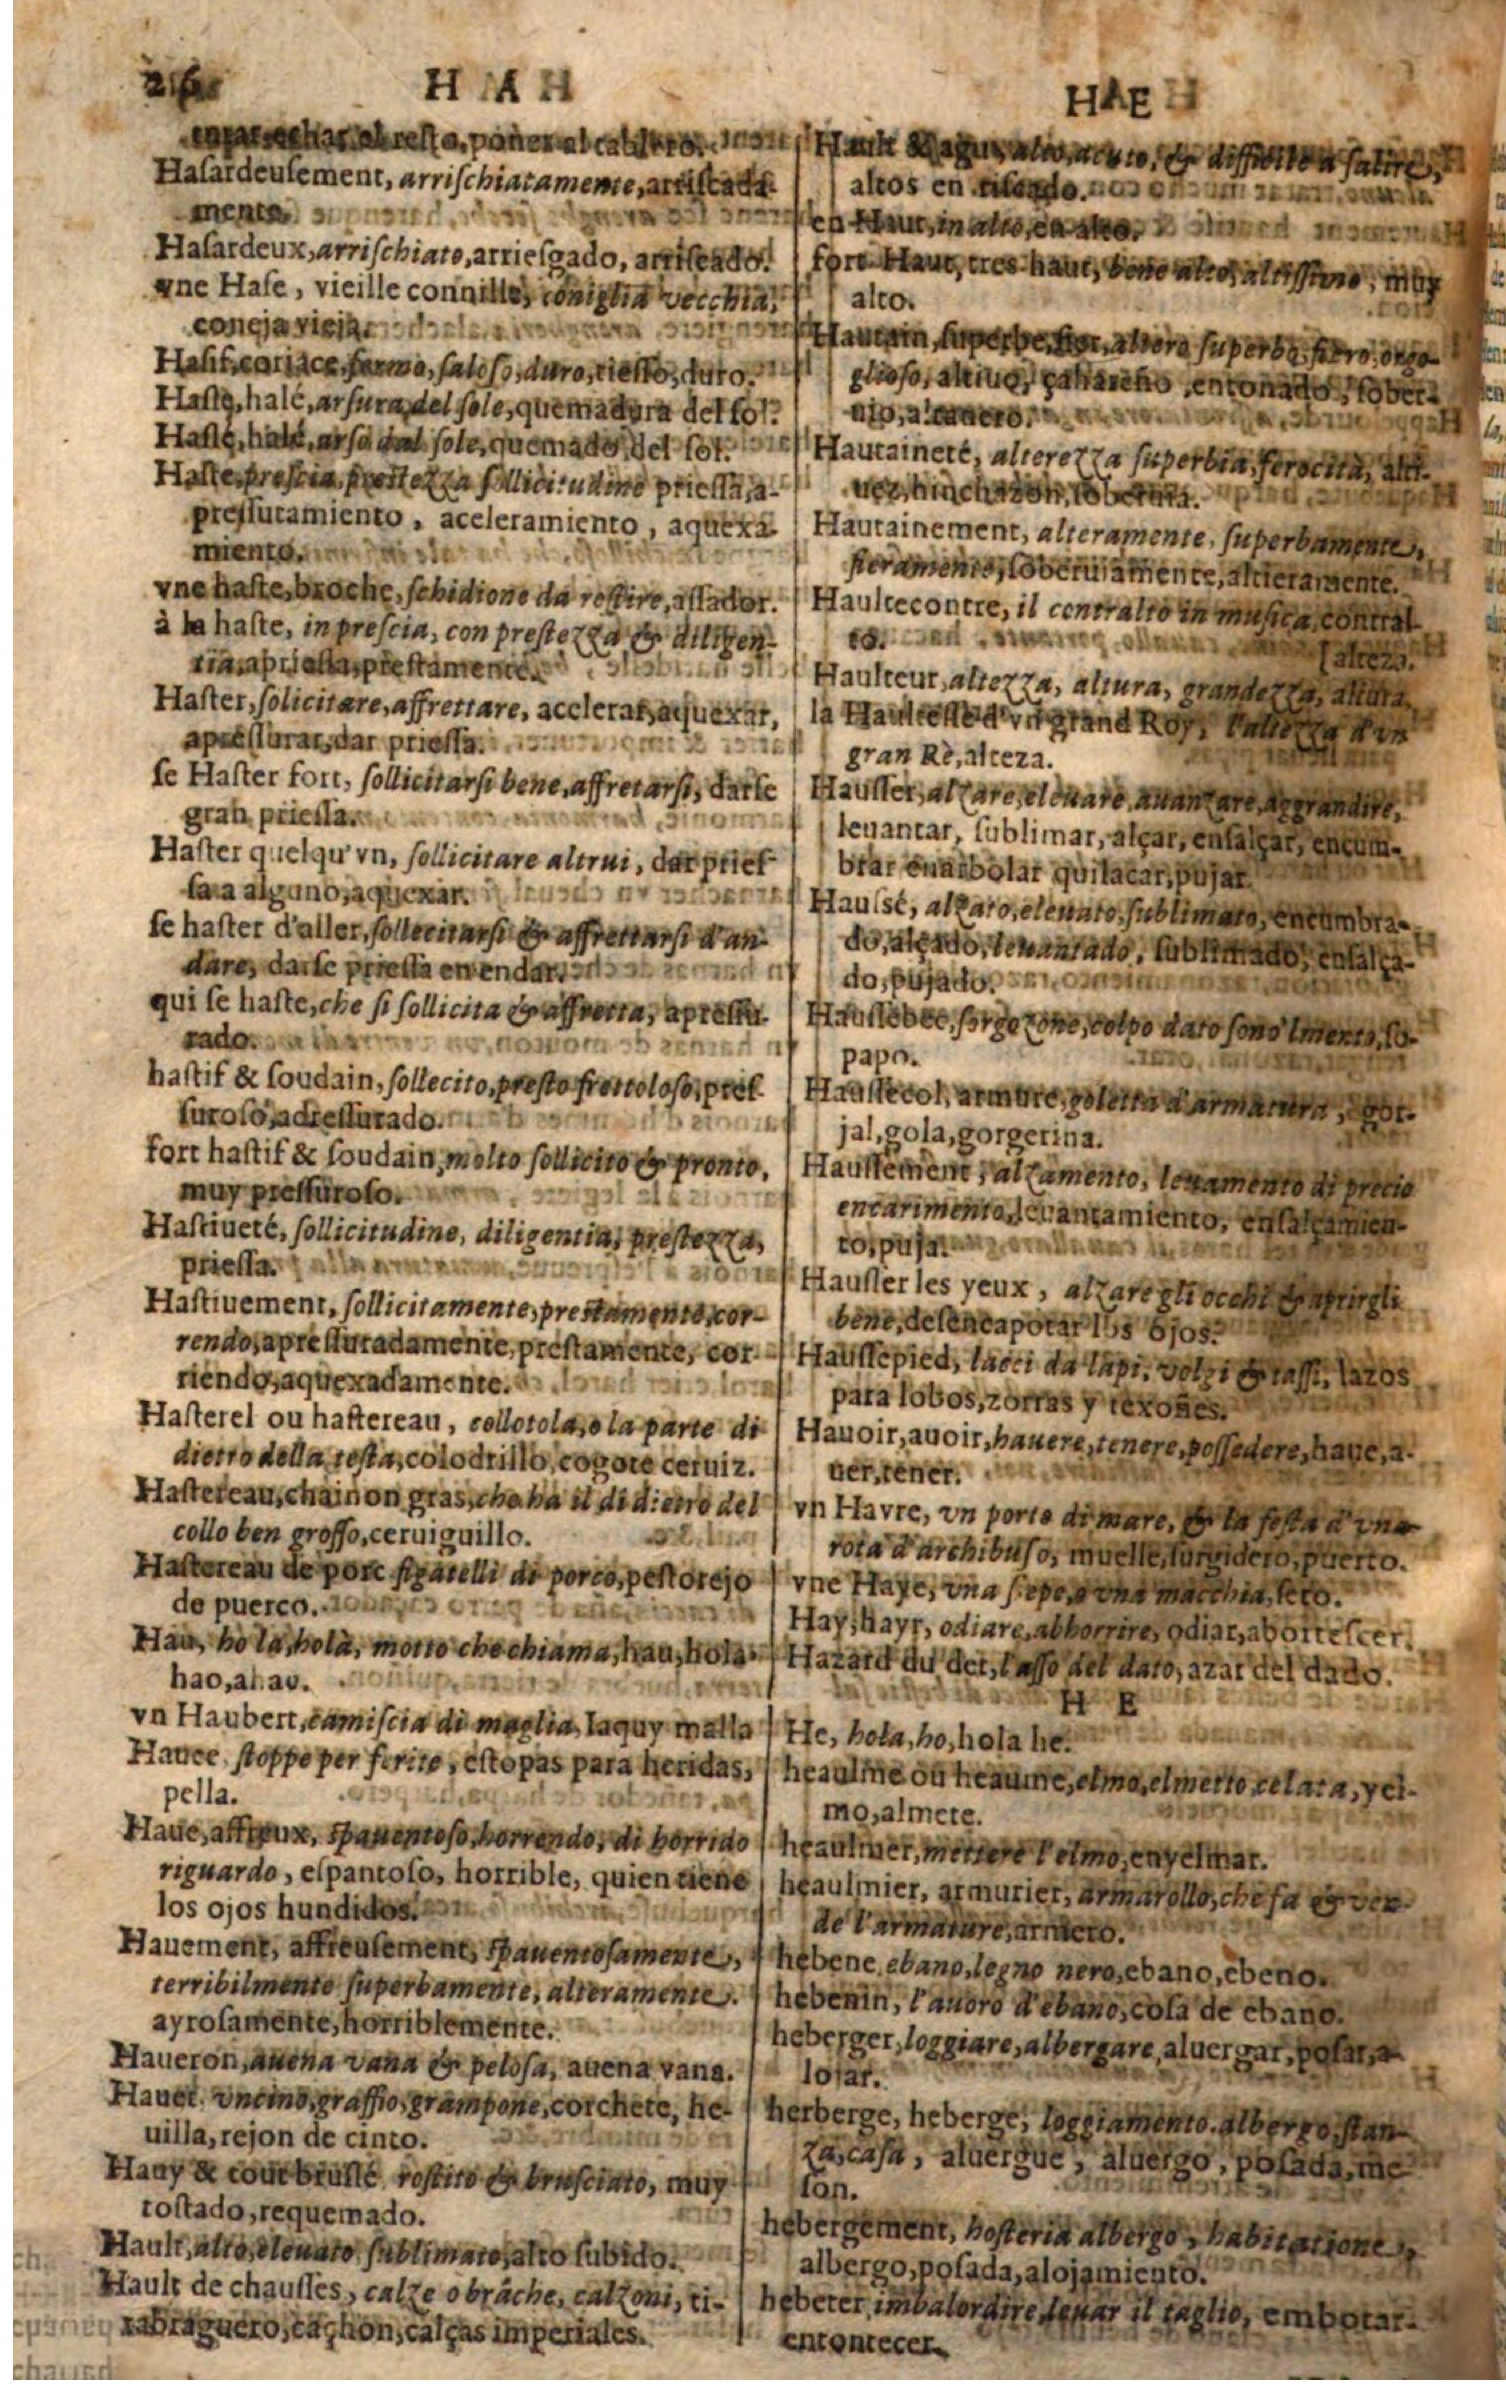 H A H
echar el resto, poner al tablero.
Hasardeusement, arrischiatamente, arriscada-
mente.
Hasardeux, arrischiato, arriesgado, arriscado.
vne Hase, vieille connille, coniglia vecchia,
coneja vieja.
Hasif, coriace, fermo, saloso, duro, tiesso, duro.
Hasle, halé, arsura del sole, quemadura del sol.
Haslé, halé, arso dal sole, quemado del sol.
Haste, prescia, prestezza sollicitudine priessa, a-
pressuramiento, aceleramiento, aquexa-
miento.
vne haste, broche, schidione da rostire, assador.
à la haste, in prescia, con prestezza & diligen-
tia, apriessa, prestamente.
Haster, solicitare, affrettare, acelerar, aquexar,
apressurar, dar priessa.
se Haster fort, sollicitarsi bene, affretarsi, darse
gran priessa.
Haster quelqu'vn, sollicitare altrui, dar pries-
sa a alguno, aquexar.
se haster d'aller, sollecitarsi & affrettarsi d'an-
dare, darse priessa en endar.
qui se haste, che si sollicita & affretta, apressu-
rado.
hastif & soudain, sollecito, presto frettoloso, pres-
suroso, adressurado.
fort hastif & soudain, molto sollicito & pronto,
muy pressuroso.
Hastiueté, sollicitudine, diligentia, prestezza,
priessa.
Hastiuement, sollicitamente, prestamente, cor-
rendo, apressuradamente, prestamente, cor-
riendo, aquexadamente.
Hasterel ou hastereau, collotola, o la parte di
dietro della testa, colodrillo, cogote ceruiz.
Hastereau, chainon gras, che ha il di dietro del
collo ben grosso, ceruiguillo.
Hastereau de porc figatelli di porco, pestorejo
de puerco.
Hau, ho la, holà, motto che chiama, hau, hola
hao, ahau.
vn Haubert, camiscia di maglia, Iaquy malla
Hauee stoppe per ferite, estopas para heridas,
pella.
Haue, affreux, spauentoso, horrendo, di horrido
riguardo, espantoso, horrible, quien tiene
los ojos hundidos.
Hauement, affreusement, spauentosamente,
terribilmente superbamente, alteramente.
ayrosamente, horriblemente.
Haueron, auena vana & pelosa, auena vana.
Hauet vncino, graffio, grampone, corchete, he-
uilla, rejon de cinto.
Hauy & tout bruslé rostito & brusciato, muy
tostado, requemado.
Hault, alto, eleuato sublimato, alto subido.
Hault de chausses, calze o brache, calzoni, ti-
rabraguero, cachon, calças imperiales.
H A E H
Hault & agu, alto, acuto, & difficile a salire,
altos en riscado.
en Haut, in alto, en alto.
fort Haut, tres haut, bene alto, altissimo, muy
alto.
Hautain, superbe, fier, altero superbo, fiero, orgo-
glioso, altiuo, çahareño, entonado, sober-
uio, altanero.
Hautaineté, alterezza superbia, ferocità, alti-
uez, hinchazon, soberuia.
Hautainement, alteramente, superbamente,
fieramente, soberuiamente, altieramente.
Haultecontre, il contralto in musica, contral-
to. [alteza.
Haulteur, altezza, altura, grandezza, altura,
la Haultesse d'vn grand Roy, l'altezza d'vn
gran Rè, alteza.
Hausser, alzare, eleuare, auanzare, aggrandire,
leuantar, sublimar, alçar, ensalçar, encum-
brar enarbolar quilacar, pujar.
Haussé, alzato, eleuato, sublimato, encumbra-
do, alçado, leuantado, sublimado, ensalça-
do, pujado.
Haussebec, sorgozone, colpo dato sono'l mento, so-
papo.
Haussecol, armure, goletta d'armatura, gor-
jal, gola, gorgerina.
Haussement, alzamento, leuamento di precio
encarimento, leuantamiento, ensalçamien-
to, puja.
Hausser les yeux, alzare gli occhi & aprirgli
bene, desencapotar los ojos.
Haussepied, lacci da lupi, volpi & tassi, lazos
para lobos, zorras y texones.
Hauoir, auoir, hauere, tenere, possedere, haue, a-
uer, tener.
vn Havre, vn porto di mare, & la festa d'vna
rota d'archibuso, muelle, surgidero, puerto.
vne Haye, vna siepe, o vna macchia, seto.
Hay, hayr, odiare, abhorrire, odiar, aborrescer.
Hazard du det, l'asso del dato, azar del dado.
H E
He, hola, ho, hola he.
heaulme ou heaume, elmo, elmetto, celata, yel-
mo, almete.
heaulmer, mettere l'elmo, enyelmar.
heaulmier, armurier, armarollo, che fa & ven-
de l'armature, armero.
hebene, ebano, legno nero, ebano, ebeno.
hebenin, l'auoro d'ebano, cosa de ebano.
heberger, loggiare, albergare, aluergar, posar, a-
lojar.
herberge, heberge, loggiamento, albergo, stan-
za, casa, aluergue, aluergo, posada, me-
son.
hebergement, hosteria albergo, habitatione,
albergo, posada, alojamiento.
hebeter, imbalordire, leuar il taglio, embotar-
entontecer.